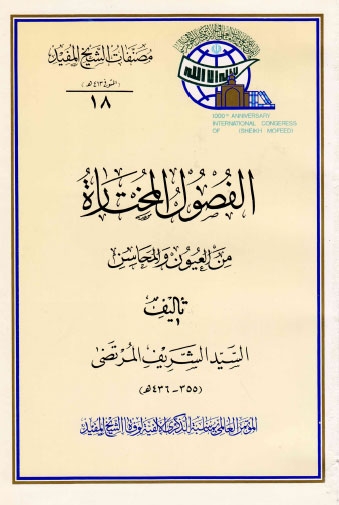 مصنفات الشيخ المفيد
(المتوفى ٤١٣ هـ)
١٨
لا اله الا الله
1000th ANNIVERSARY
INTERNATIONAL CONGERESS
OF (SHEIKH MOFEED)
الفُصُولُ المُختارة
مِنَ العُيون وَالمحَاسِن
تأليف
السَّيِّد الشَّريف المُرتضىٰ
(٣٥٥ - ٤٣٦ هـ)
المؤتمر العالمي بمناسبة الذكرى الألفية لوفاة الشيخ المفيد